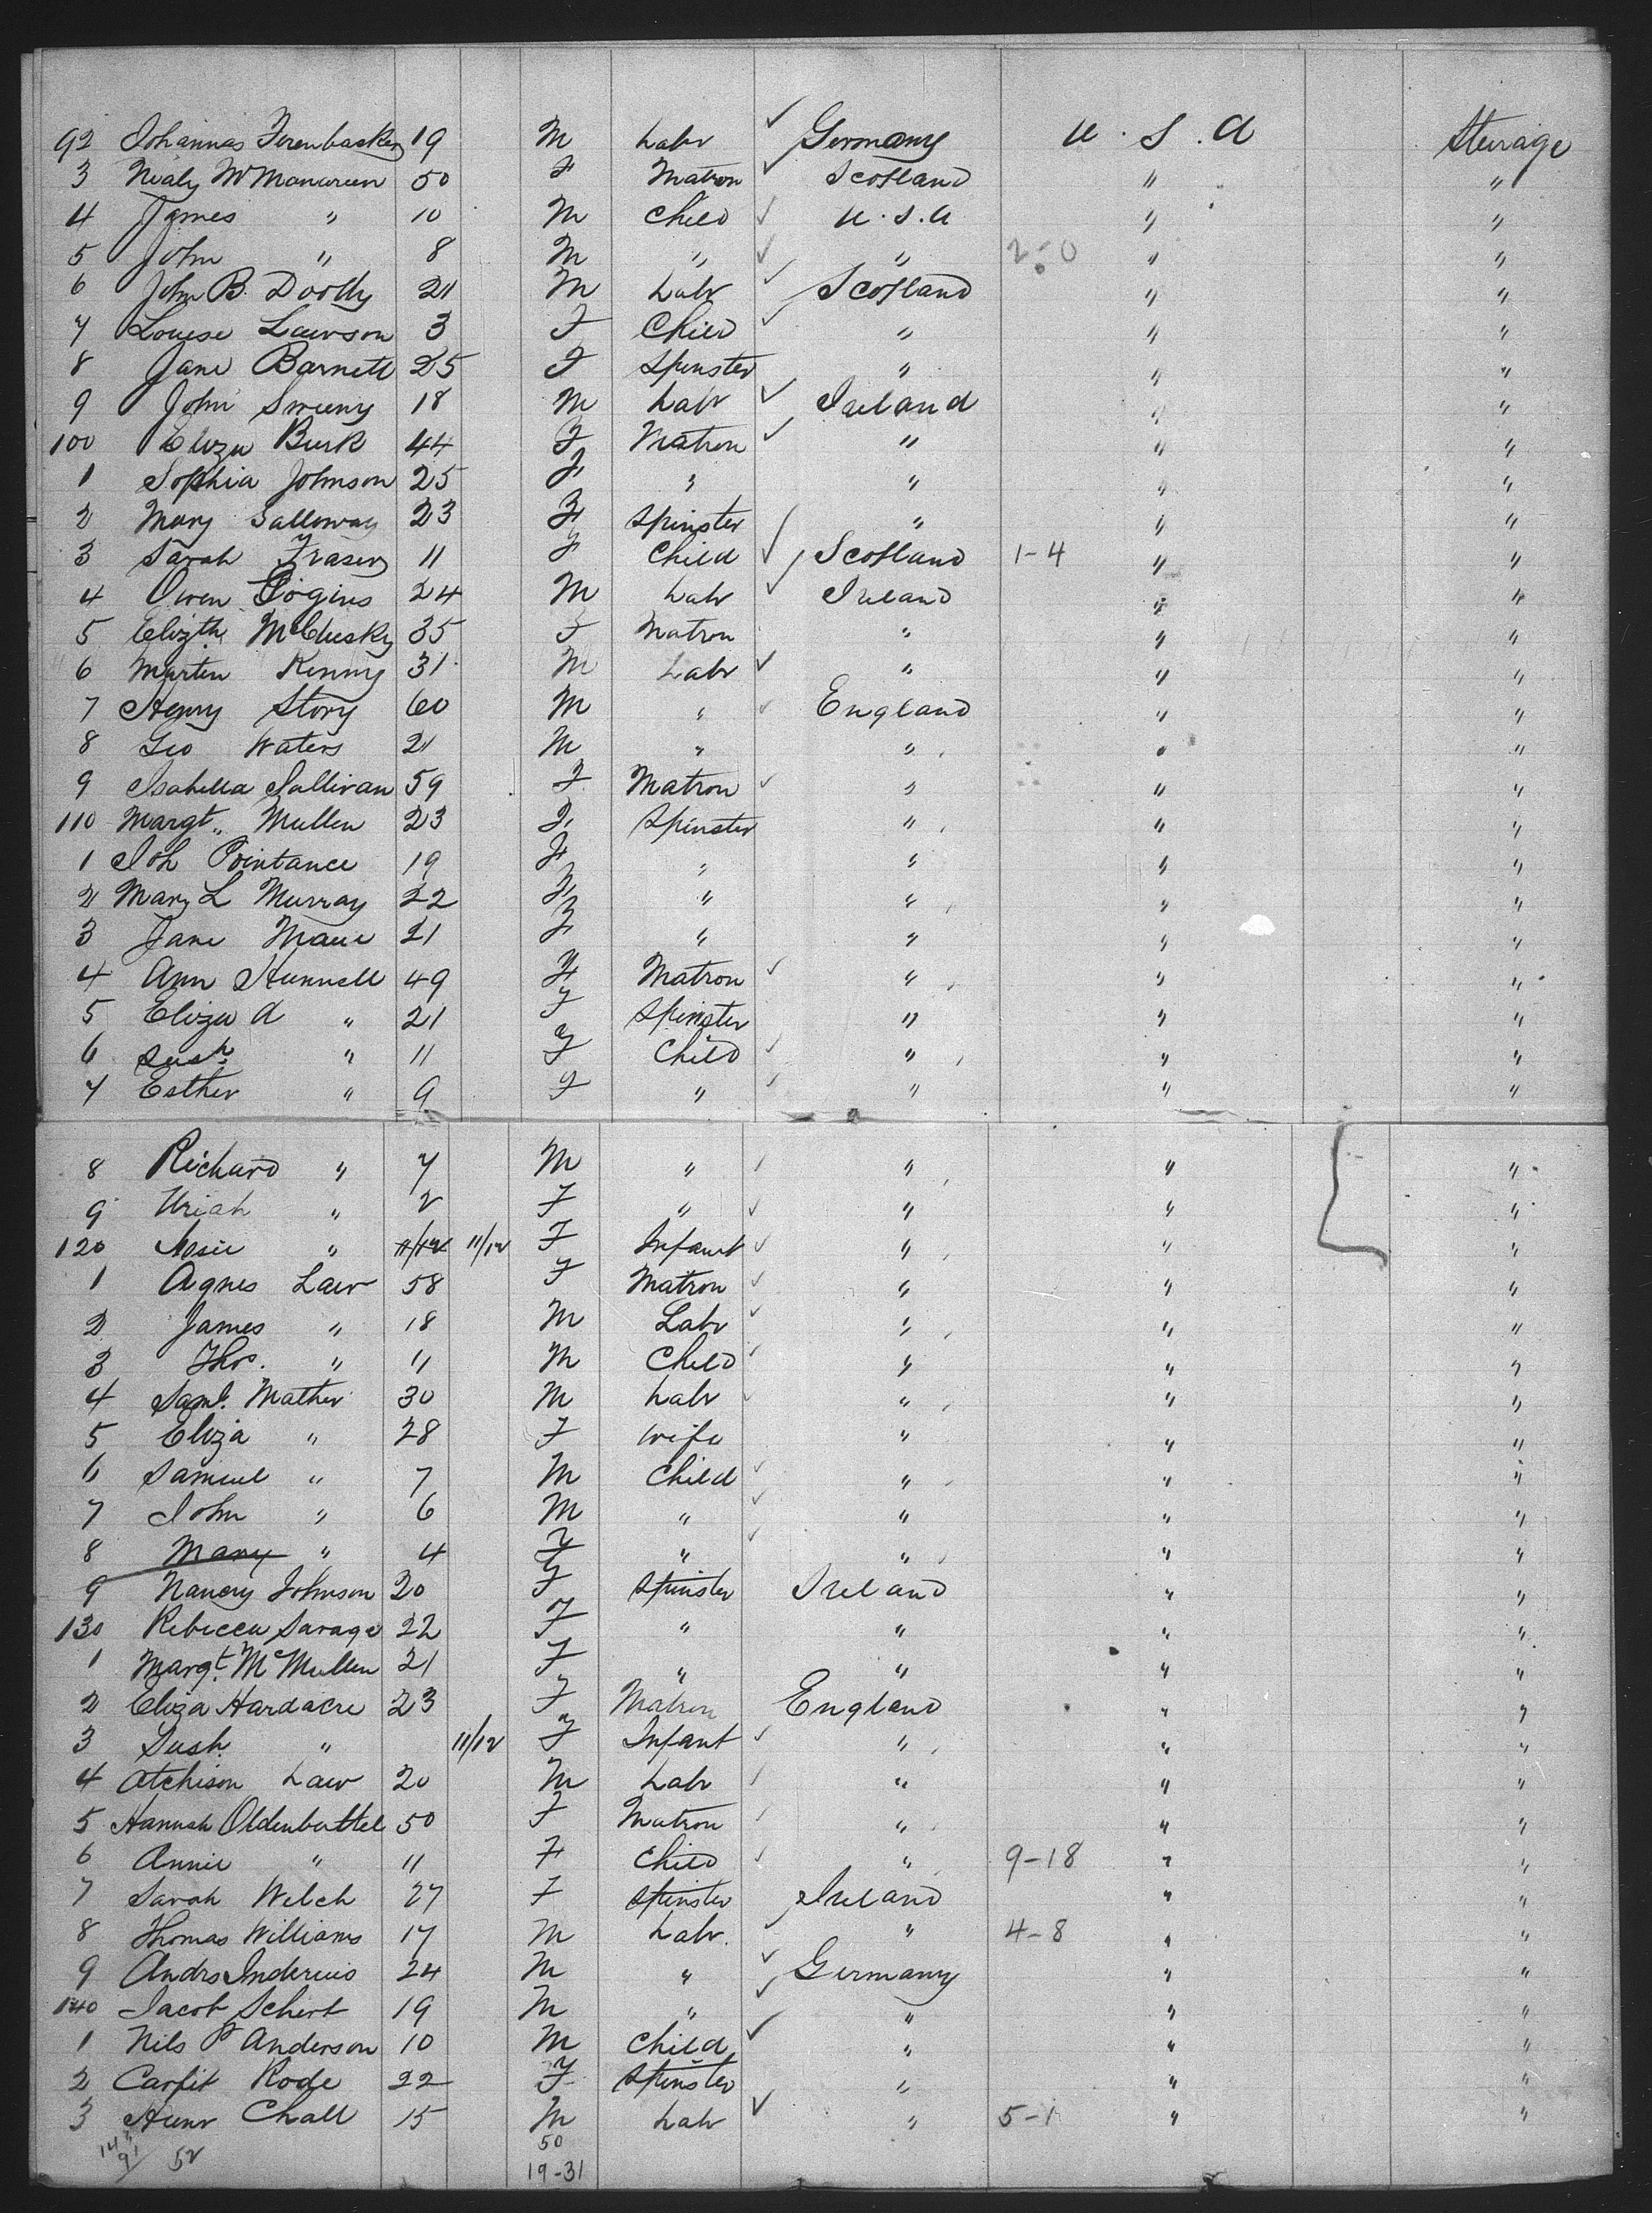 92 Johannas Ferenbacker 19 M Labr ✓ Germany U.S.A Steerage
3 Nealy McManareen 50 F Matron ✓ Scotland " "
4 James " 10 M Child ✓ U.S.A " "
5 John " 8 M " ✓ " 2-0 " "
6 John B. Doolly 21 M Labr ✓ Scotland " "
7 Louise Lawson 3 F Child ✓ " " "
8 Jane Barnett 25 F Spinster " " "
9 John Sweeny 18 M Labr ✓ Ireland " "
100 Eliza Burk 44 F Matron ✓ " " "
1 Sophia Johnson 25 F " " " "
2 Mary Galloway 23 F Spinster " " "
3 Sarah Fraser 11 F Child ✓ Scotland 1-4 " "
4 Owen Gogins 24 M Labr ✓ Ireland " "
5 Elizth McClusky 35 F Matron " " "
6 Marten Kenny 31 M Labr ✓ " " "
7 Henry Story 60 M " ✓ England " "
8 Geo Waters 21 M " " " "
9 Isabella Sullivan 59 F Matron ✓ " " "
110 Margt Mullen 23 F Spinster " " "
1 Joh Pointance 19 F " " " "
2 Mary L Murray 22 F " " " "
3 Jane 21 F " " " "
4 Ann Hunnell 49 F Matron ✓ " " "
5 Eliza A " 21 F Spinster " " "
6 Sush " 11 F Child ✓ " " "
7 Esther " 9 F " ✓ " " "
8 Richard " 7 M " ✓ " " "
9 Uriah " 2 F " ✓ " " "
120 " 11/12 11/12 F Infant ✓ " " "
1 Agnes Law 58 F Matron ✓ " " "
2 James " 18 M Labr ✓ " " "
3 Thos. " 11 M Child ✓ " " "
4 Saml. Mather 30 M Labr ✓ " " "
5 Eliza " 28 F Wife " " "
6 Samuel " 7 M Child ✓ " " "
7 John " 6 M " ✓ " " "
8 Mary " 4 F " ✓ " " "
9 Nancy Johnson 20 F Spinster Ireland " "
130 Rebecca Savage 22 F " " " "
1 Margt. McMullen 21 F " " " "
2 Eliza Hardacre 23 F Matron England " "
3 Sush " 11/12 F Infant ✓ " " "
4 Atchison Law 20 M Labr ✓ " " "
5 Hannah Oldenbuttel 50 F Matron ✓ " " "
6 Annie " 11 F Child ✓ " 9-18 " "
7 Sarah Welch 27 F Spinster Ireland " "
8 Thomas Williams 17 M Labr. ✓ " 4-8 " "
9 Andrs Inderius 24 M " ✓ Germany " "
140 Jacob Schert 19 M " ✓ " " "
1 Nils P Anderson 10 M Child ✓ " " "
2 Carfit Rode 22 F Spinster " " "
3 Chall 15 M Labr ✓ " 5-1 " "
143 50
91 52 19-31